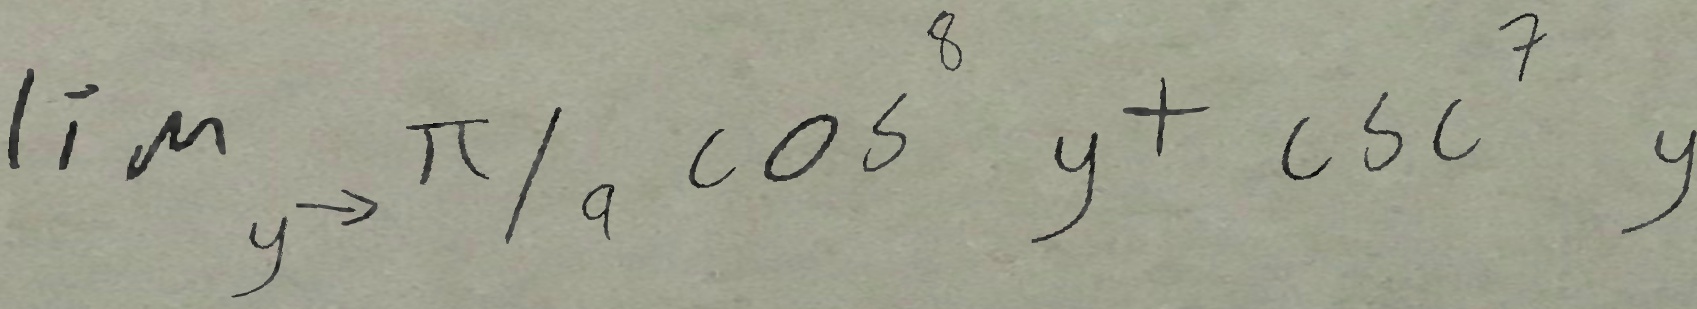 lim y→ π/9 cos^8 y + csc^7 y